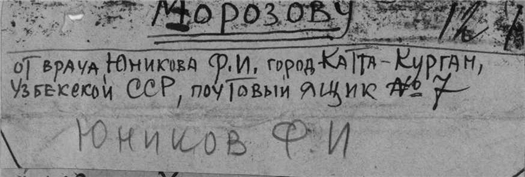 Морозову
от врача Юникова Ф.И. город Катта-Курган,
Узбекской ССР, почтовый ящик № 7
Юников Ф.И